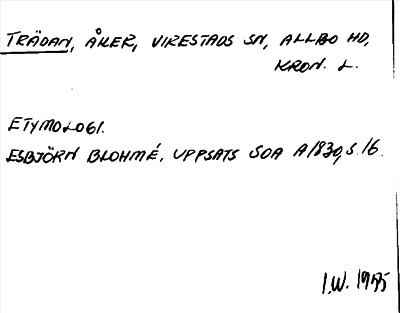 TRÄDAN, ÅKER, VIRESTADS SN, ALLBO HD,
KRON. L.
ETYMOLOGI.
ESBJÖRN BLOHMÉ, UPPSATS SOA A1830, S. 16.
I.W. 1975